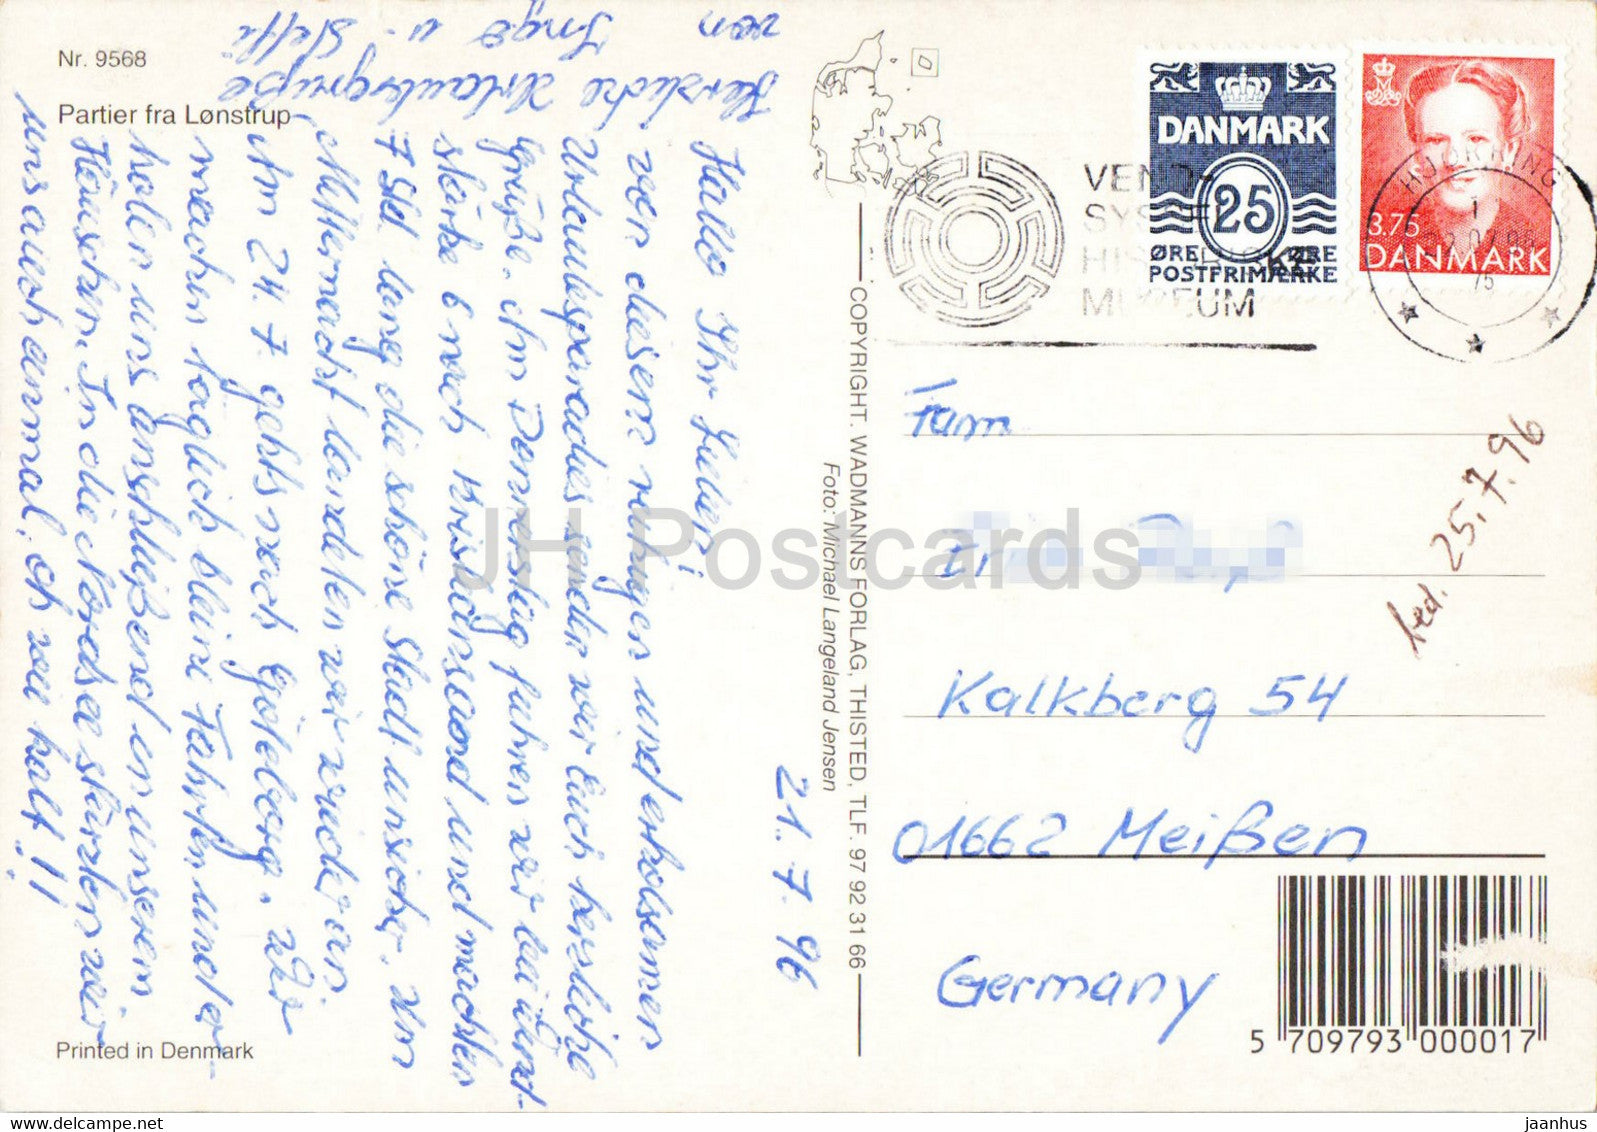 Nr. 9568
Partier fra Lønstrup
21.7.96
Hallo Ihr Lieben!
von diesem ruhigen und erholsamen
Urlaubsparadies senden wir Euch herzliche
Grüße. Am Donnerstag fuhren wir bei Wind-
stärke 6 nach Kristiansand und machten
7 Std. lang die schöne Stadt unsicher. Um
Mitternacht landeten wir wieder an
Am 24.7. gehts nach Göteborg. Wir
machen täglich kleine Fahrten und er-
holen uns anschließend in unserem
Häuschen. In die Nordsee stürzten wir
uns auch einmal, ich war kalt!!
Herzliche Urlaubsgrüße
von Ingo u. Steffi
Printed in Denmark
COPYRIGHT. WADMANNS FORLAG, THISTED, TLF. 97 92 31 66
Foto: Michael Langeland Jensen
VEND-
SYSSEL
HISTORISKE
MUSEUM
DANMARK
25
ØRE ØRE
POSTFRIMÆRKE
3.75
DANMARK
HJØRRING
Fam
Kalkberg 54
01662 Meißen
Germany
bed. 25.7.96
5 709793 000017
JH Postcards
delcampe.net
jaanhus